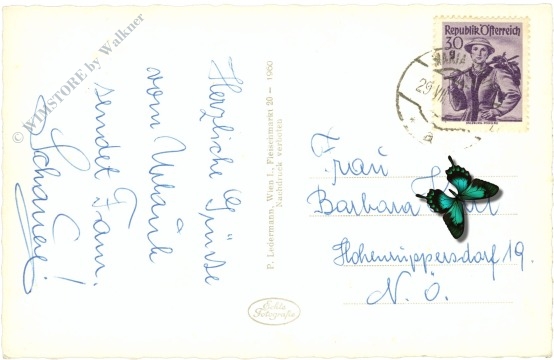 © WIMSTORE by Walkner
Herzliche Grüsse
vom Urlaub
sendet Fam.
Schauer!
P. Ledermann, Wien I., Fleischmarkt 20 – 1960
Nachdruck verboten
Echte
Fotografie
Republik Österreich
30
g
29.VII
Frau
Barbara
Hohenruppersdorf 19.
N. Ö.